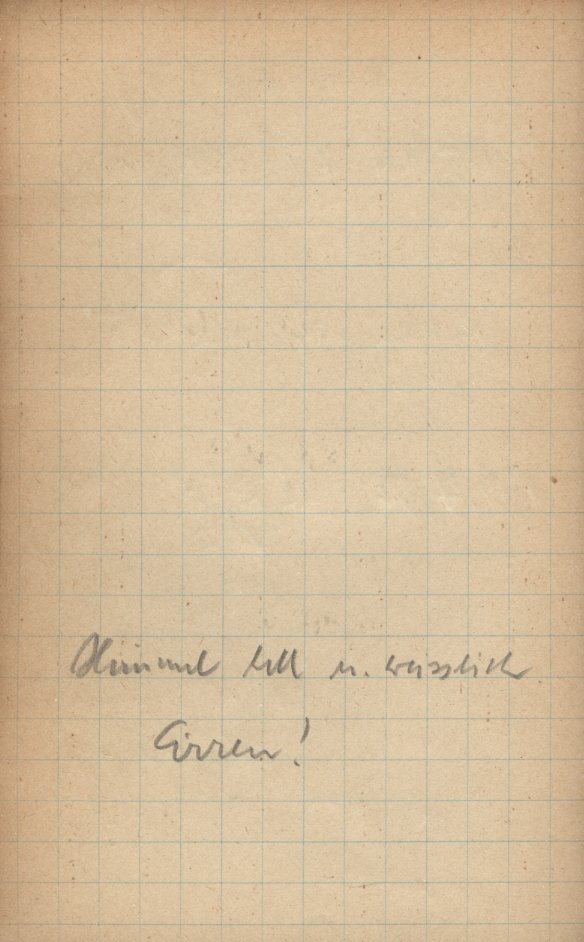 Himmel hell u. weisslich
Cirren!